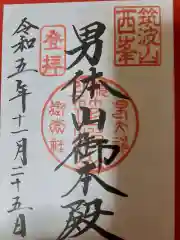 筑波山
西峯
登拝
男体山御本殿
令和五年十一月二十五日